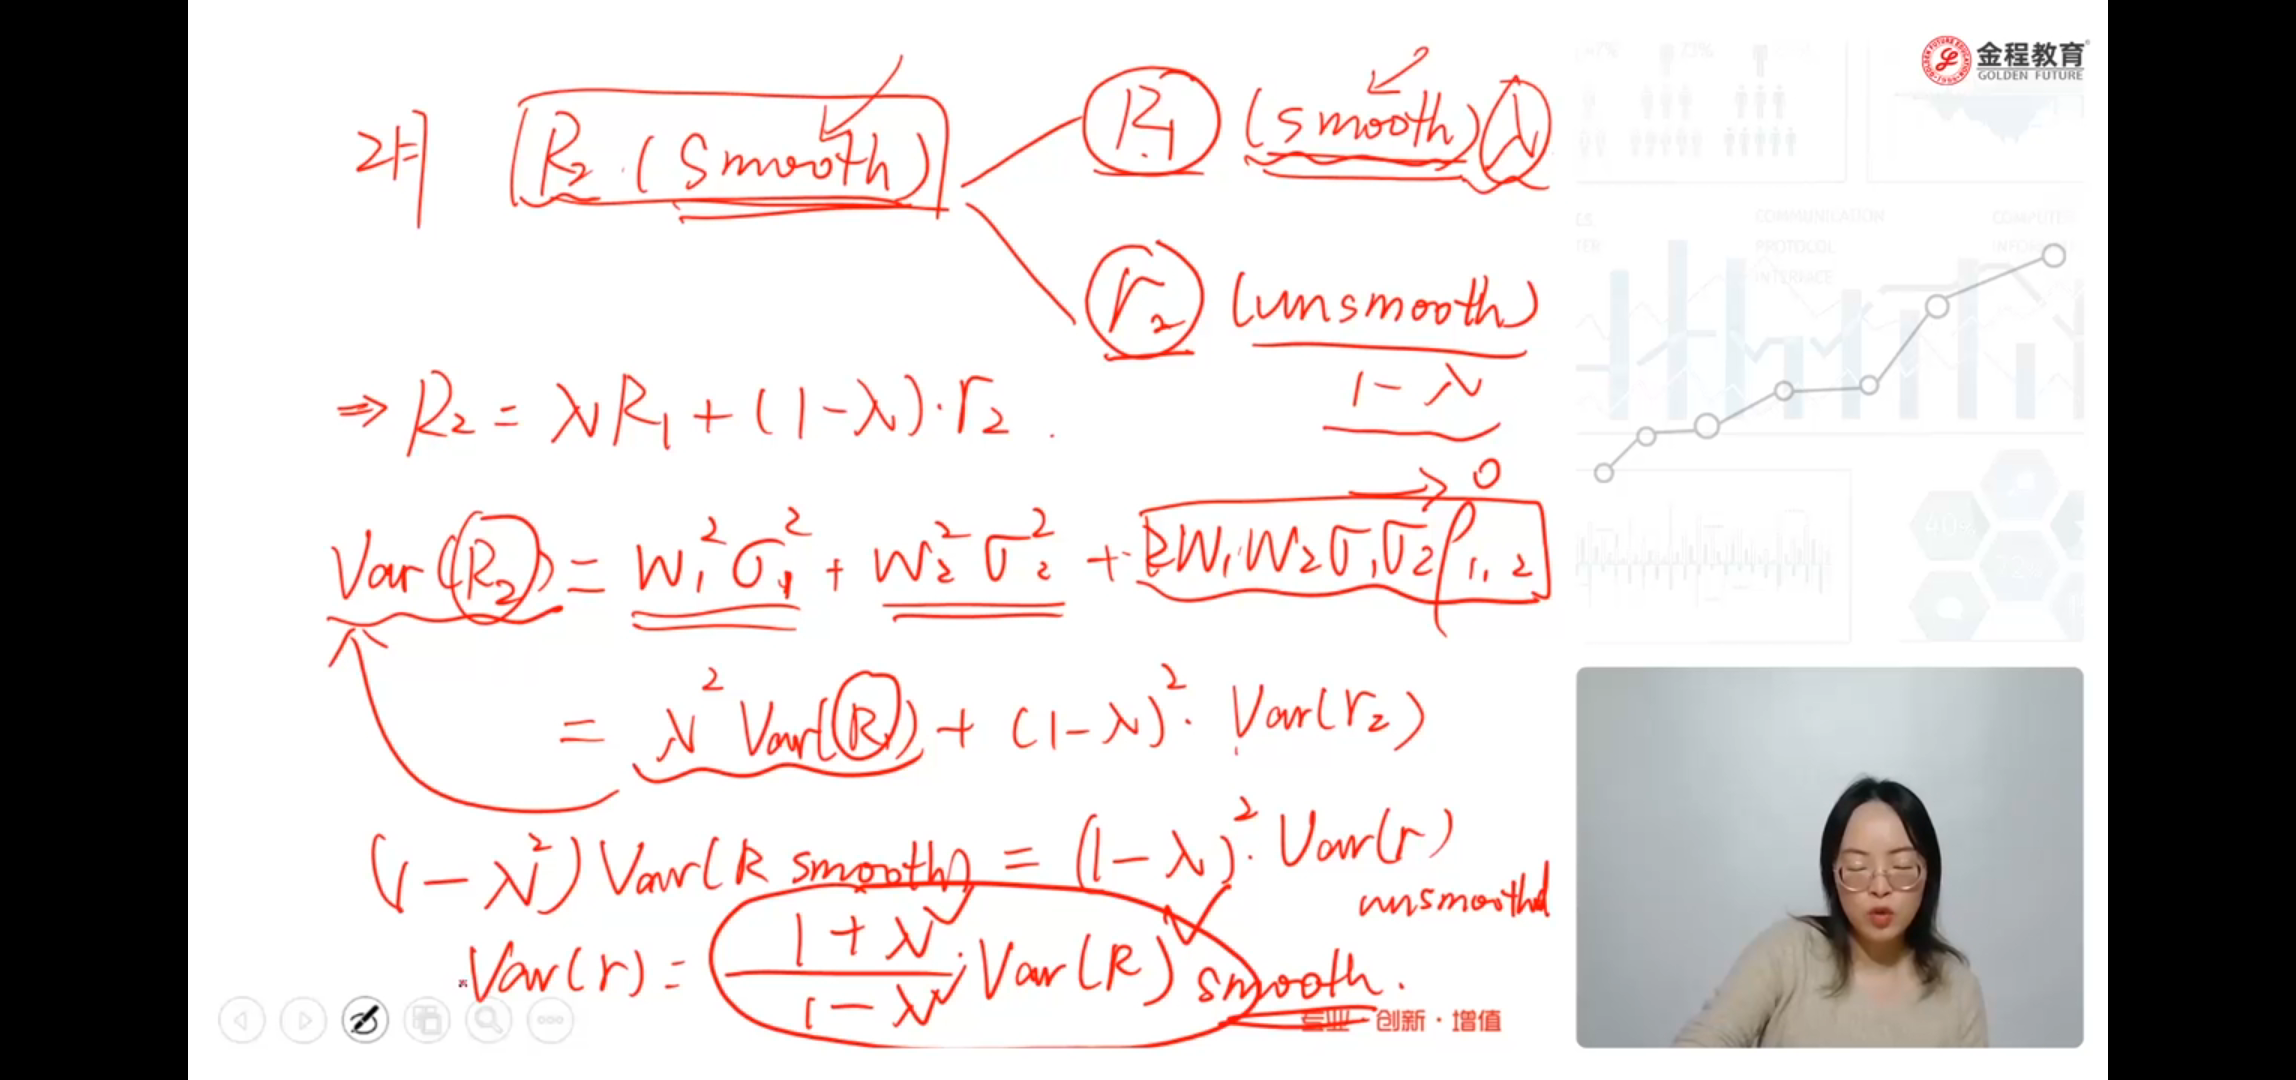 金程教育
GOLDEN FUTURE
2月 R₂ (Smooth) R₁ (smooth) λ
r₂ (unsmooth)
1-λ
⇒ R₂ = λR₁ + (1-λ)·r₂
→ 0
Var(R₂) = W₁²σ₁² + W₂²σ₂² + 2W₁W₂σ₁σ₂ρ₁,₂
= λ² Var(R₁) + (1-λ)²· Var(r₂)
(1-λ²) Var(R smooth) = (1-λ)²· Var(r)
unsmoothed
Var(r) = (1+λ)/(1-λ) · Var(R) smooth.
专业·创新·增值
COMMUNICATION
PROTOCOL
INTERFACE
73%
40%